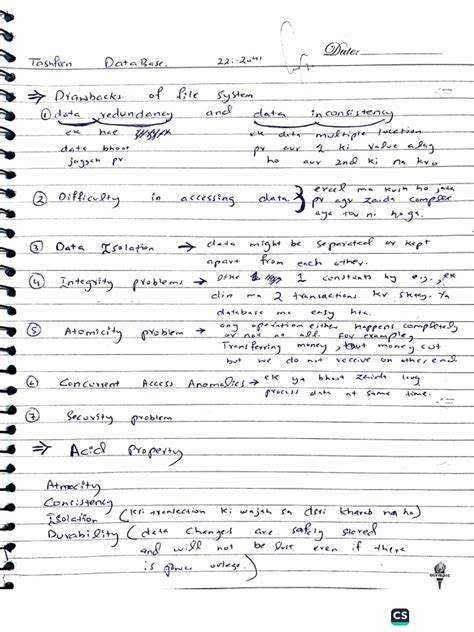 Date:
Tashfeen DataBase.
⇒ Drawbacks of file system
① data redundancy and data inconsistency
ek hae ek data multiple location
data bhoot pr aur 1 ki value alag
jaggah pr. ho aur 2nd ki na kro
② Difficulty in accessing data. } excel ma kush ho jata
pr agr zaida complex
aya tou ni hoga.
③ Data Isolation → data might be separated or kept
apart from each other.
④ Integrity problems → 1 constants hy e.g., ek
din ma 2 transactions kr sktey. ya
database ma easy hta.
⑤ Atomicity problem → any operation either happens completely
or not at all. For example,
Transferring money, but money cut
but we do not receive on other end.
⑥ Concurrent Access Anomalies → ek ya bhoot zaida log
process data at same time.
⑦ Security problem
⇒ Acid Property
Atmocity
Consistency
Isolation (ksi transection ki wajah sa dsri kharab na ho)
Durability (data changes are safely stored
and will not be lost even if there
is power outage.)
OLYMPIC
CS